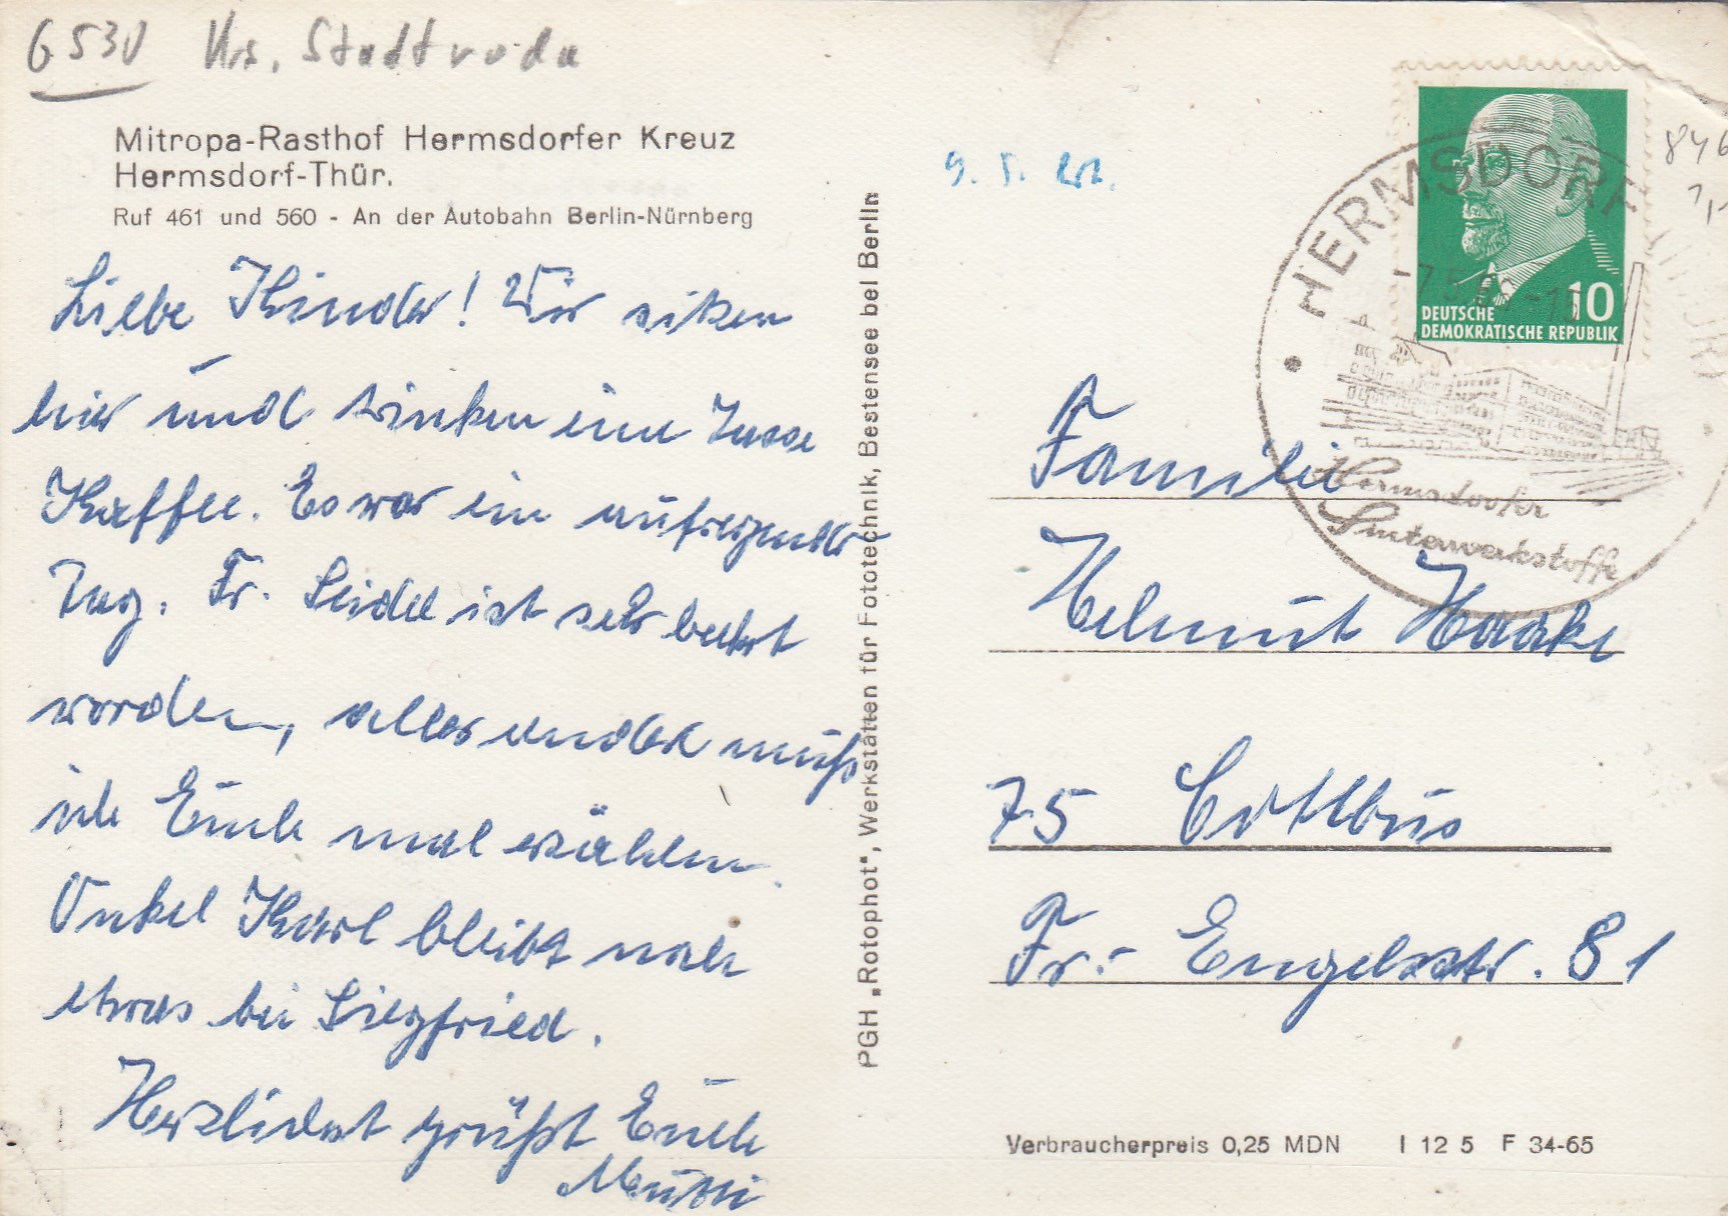 6530 Krs. Stadtroda
Mitropa-Rasthof Hermsdorfer Kreuz
Hermsdorf-Thür.
Ruf 461 und 560 - An der Autobahn Berlin-Nürnberg
Liebe Kinder! Wir sitzen
hier und trinken eine Tasse
Kaffee. Es war ein aufregender
Tag. Fr. Seidel ist sehr
worden, alles andere muß
ich Euch mal erzählen.
Onkel Karl bleibt noch
etwas bei Siegfried.
Herzlichst grüßt Euch
Mutti
PGH „Rotophot", Werkstätten für Fototechnik, Bestensee bei Berlin
9. 5.
846
HERMSDORF
-7.5.
Hermsdorfer
Sinterwerkstoffe
10
DEUTSCHE
DEMOKRATISCHE REPUBLIK
Familie
Helmut Haake
75 Cottbus
Fr.- Engelsstr. 81
Verbraucherpreis 0,25 MDN I 12 5 F 34-65